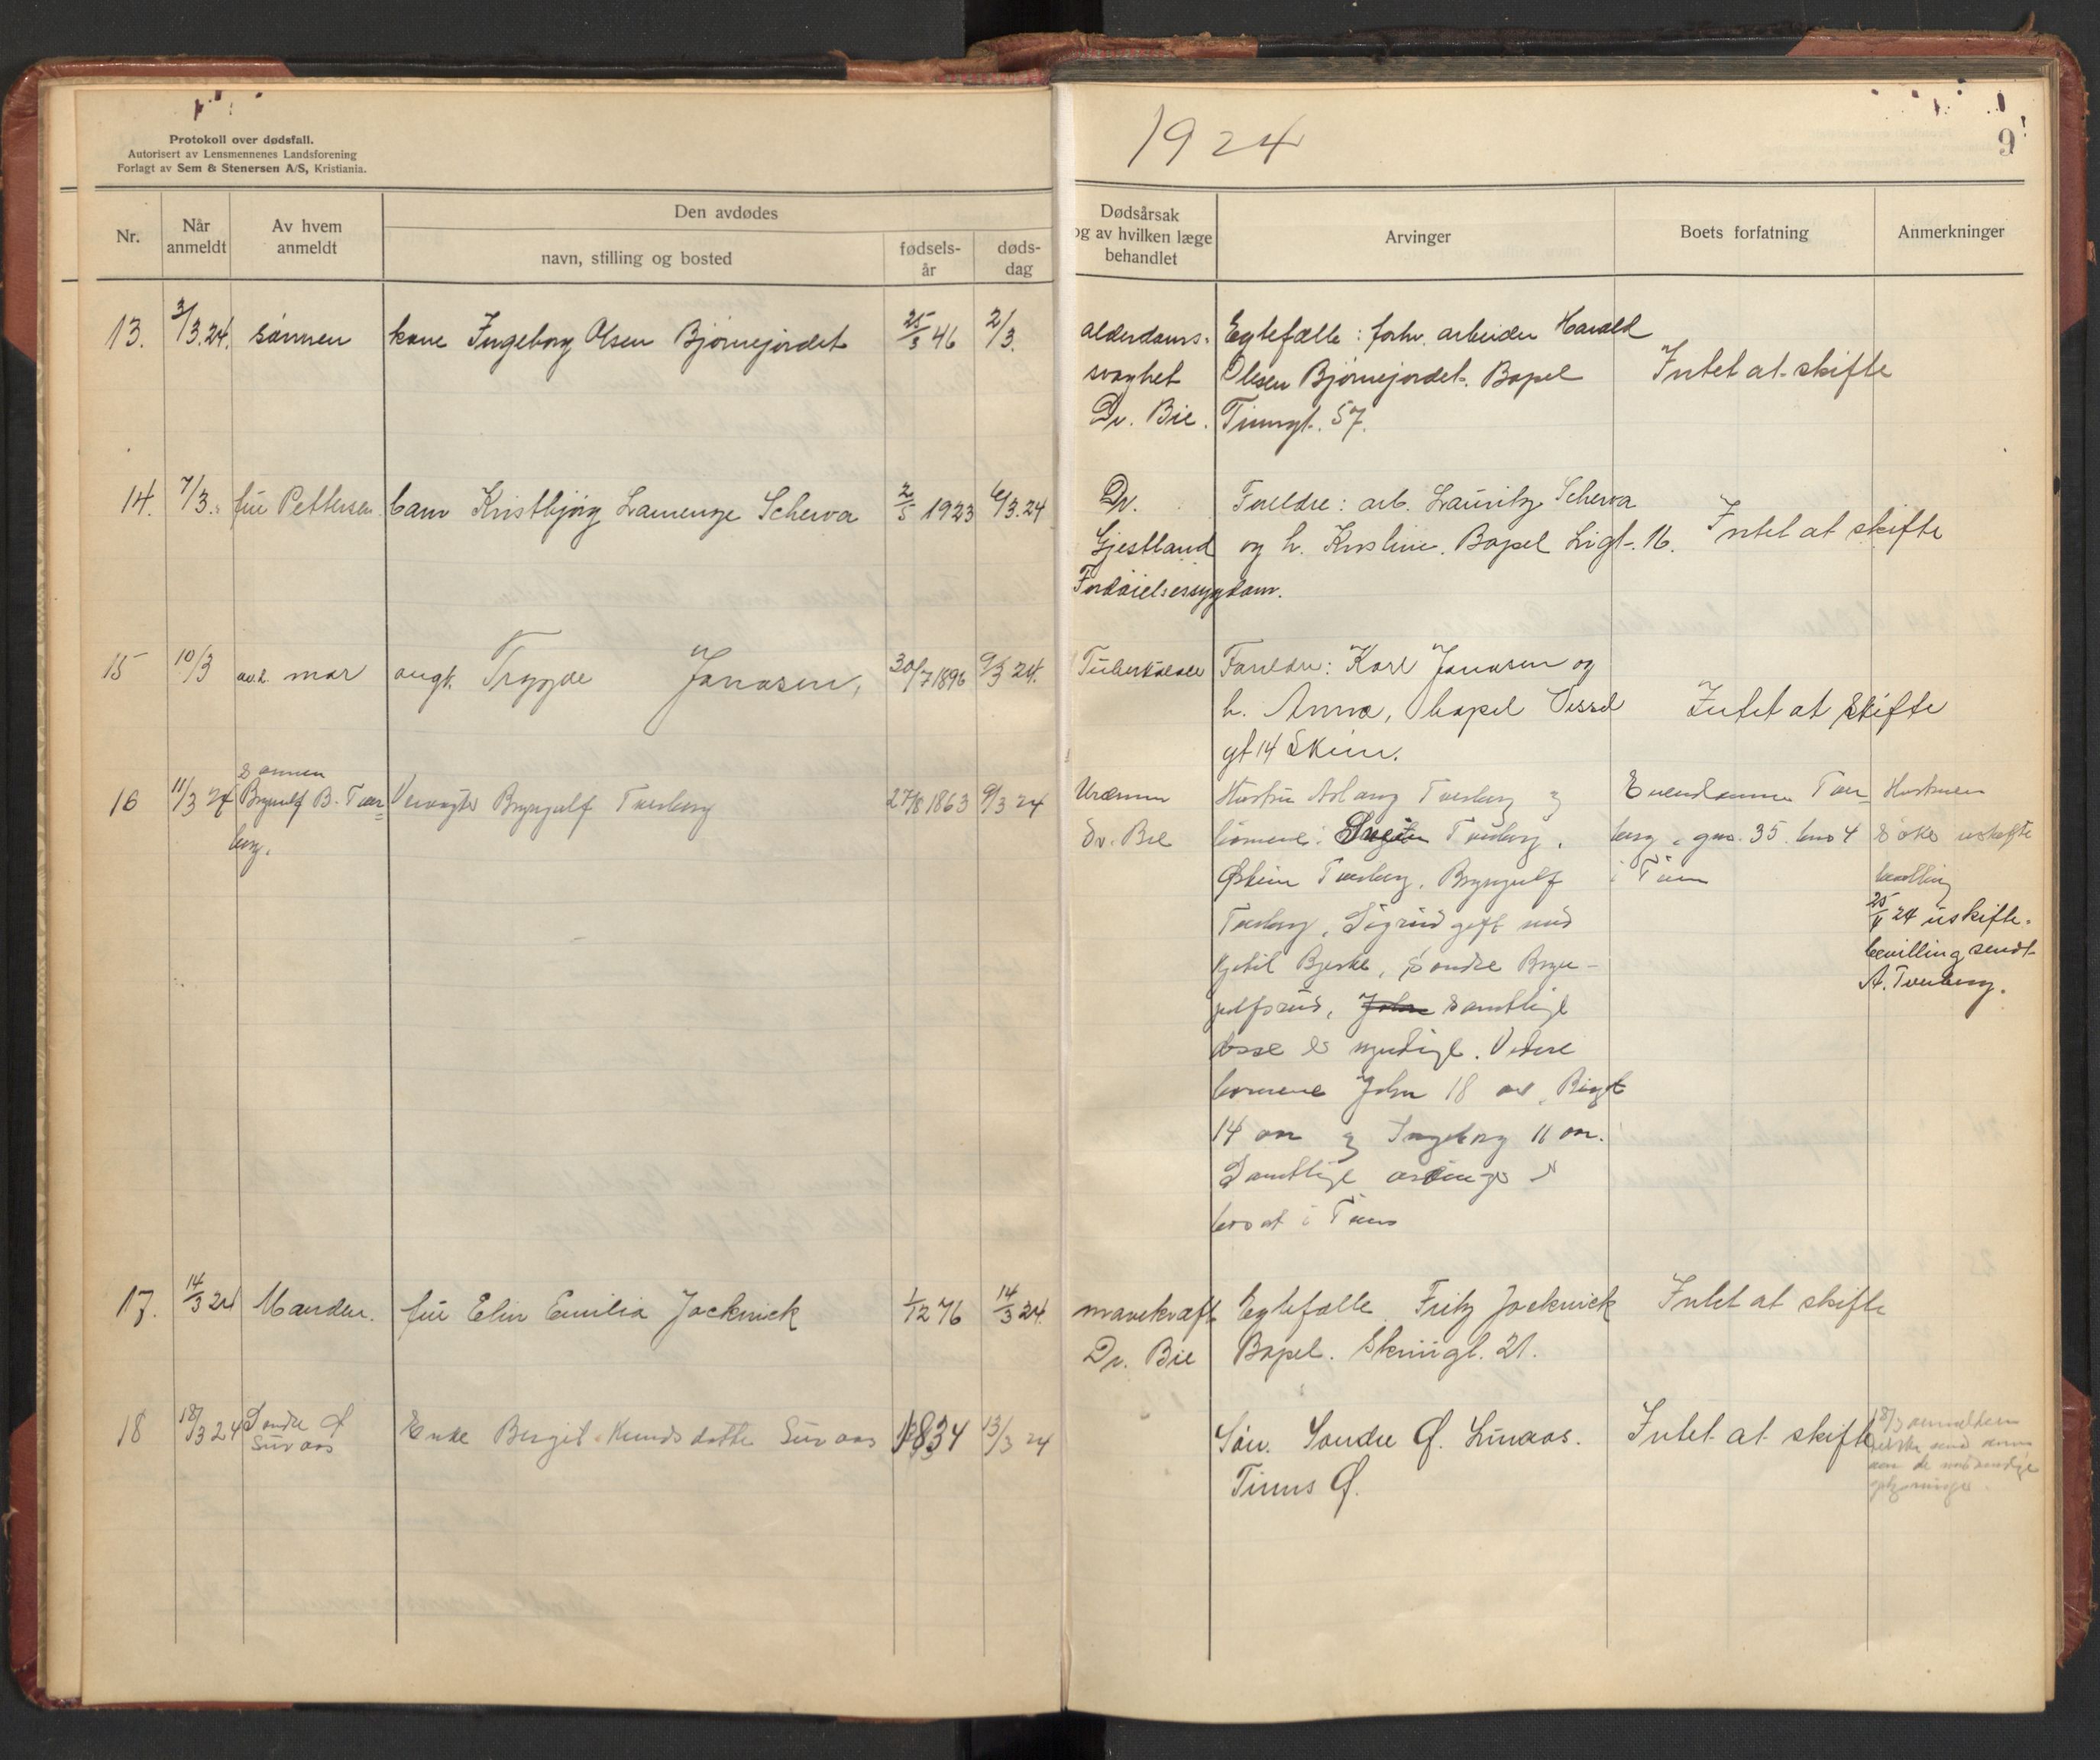 Protokoll over dødsfall.
Autorisert av Lensmennenes Landsforening
Forlagt av Sem & Stenersen A/S, Kristiania.
1924
9
Nr.
Når anmeldt
Av hvem anmeldt
Den avdødes
navn, stilling og bosted
fødsels-
år
døds-
dag
Dødsårsak
og av hvilken læge
behandlet
Arvinger
Boets forfatning
Anmerkninger
13. 3/3.24. sønnen kone Ingeborg Olsen Bjørnejordet 25/3 46 2/3.
alderdoms-
svaghet
Dr. Bie.
Egtefælle: forhv. arbeider Harald
Olsen Bjørnejordet. Bopel
Tinngt. 57.
Intet at skifte
14. 7/3. frú Pettersen barn Kristbjørg Scherva 2/5 1923 6/3.24
Dr.
Gjestland
Fordøielsessygdom.
Foreldre: arb. Lauritz Scherva
og h. Kristine. Bopel 16.
Intet at skifte
15 10/3 av d. mor ungk. Trygve Jonasen, 30/7 1896 9/3 24.
Tuberkulose
Foreldre: Karl Jonasen og
h. Anna, bopel
gt 14 Skien.
Intet at skifte
16 11/3 24 Sønnen
Brynulf B. Tver=
berg.
Brynjulf Tverberg 27/8 1863 9/3 24
Uræmi
Dr. Bie
Hustru Aslaug Tverberg og
børnene: Tverberg,
Østein Tverberg, Brynjulf
Tverberg, Sigrid gift med
Kjetil Bjerke, Søndre Bryn-
julfsrud, John samtlige
disse er myndige. Videre
børnene John 18 aar, Birgit
14 aar og Ingeborg 11 aar.
Samtlige arvinger er
bosat i Tinn
Eiendommen Tver
berg, gno. 35. bno 4
i Tinn
Hustruen
søker uskifte
bevilling
25/4 24 uskifte-
bevilling sendt
A. Tverberg.
17. 14/3 24 Manden. frú Elin Emilia Jacknick 1/12 76 14/3 24.
mavekræft
Dr. Bie
Egtefælle Fritz Jacknick
Bopel. Skriugt. 21.
Intet at skifte
18 18/3 24 Sondre Ø
Enke Bergit Knudsdatter 1834 13/3 24
Søn. Sondre Ø.
Tinns Ø.
Intet at skifte
18/3 anmelderen
de nødvendige
oplysninger.